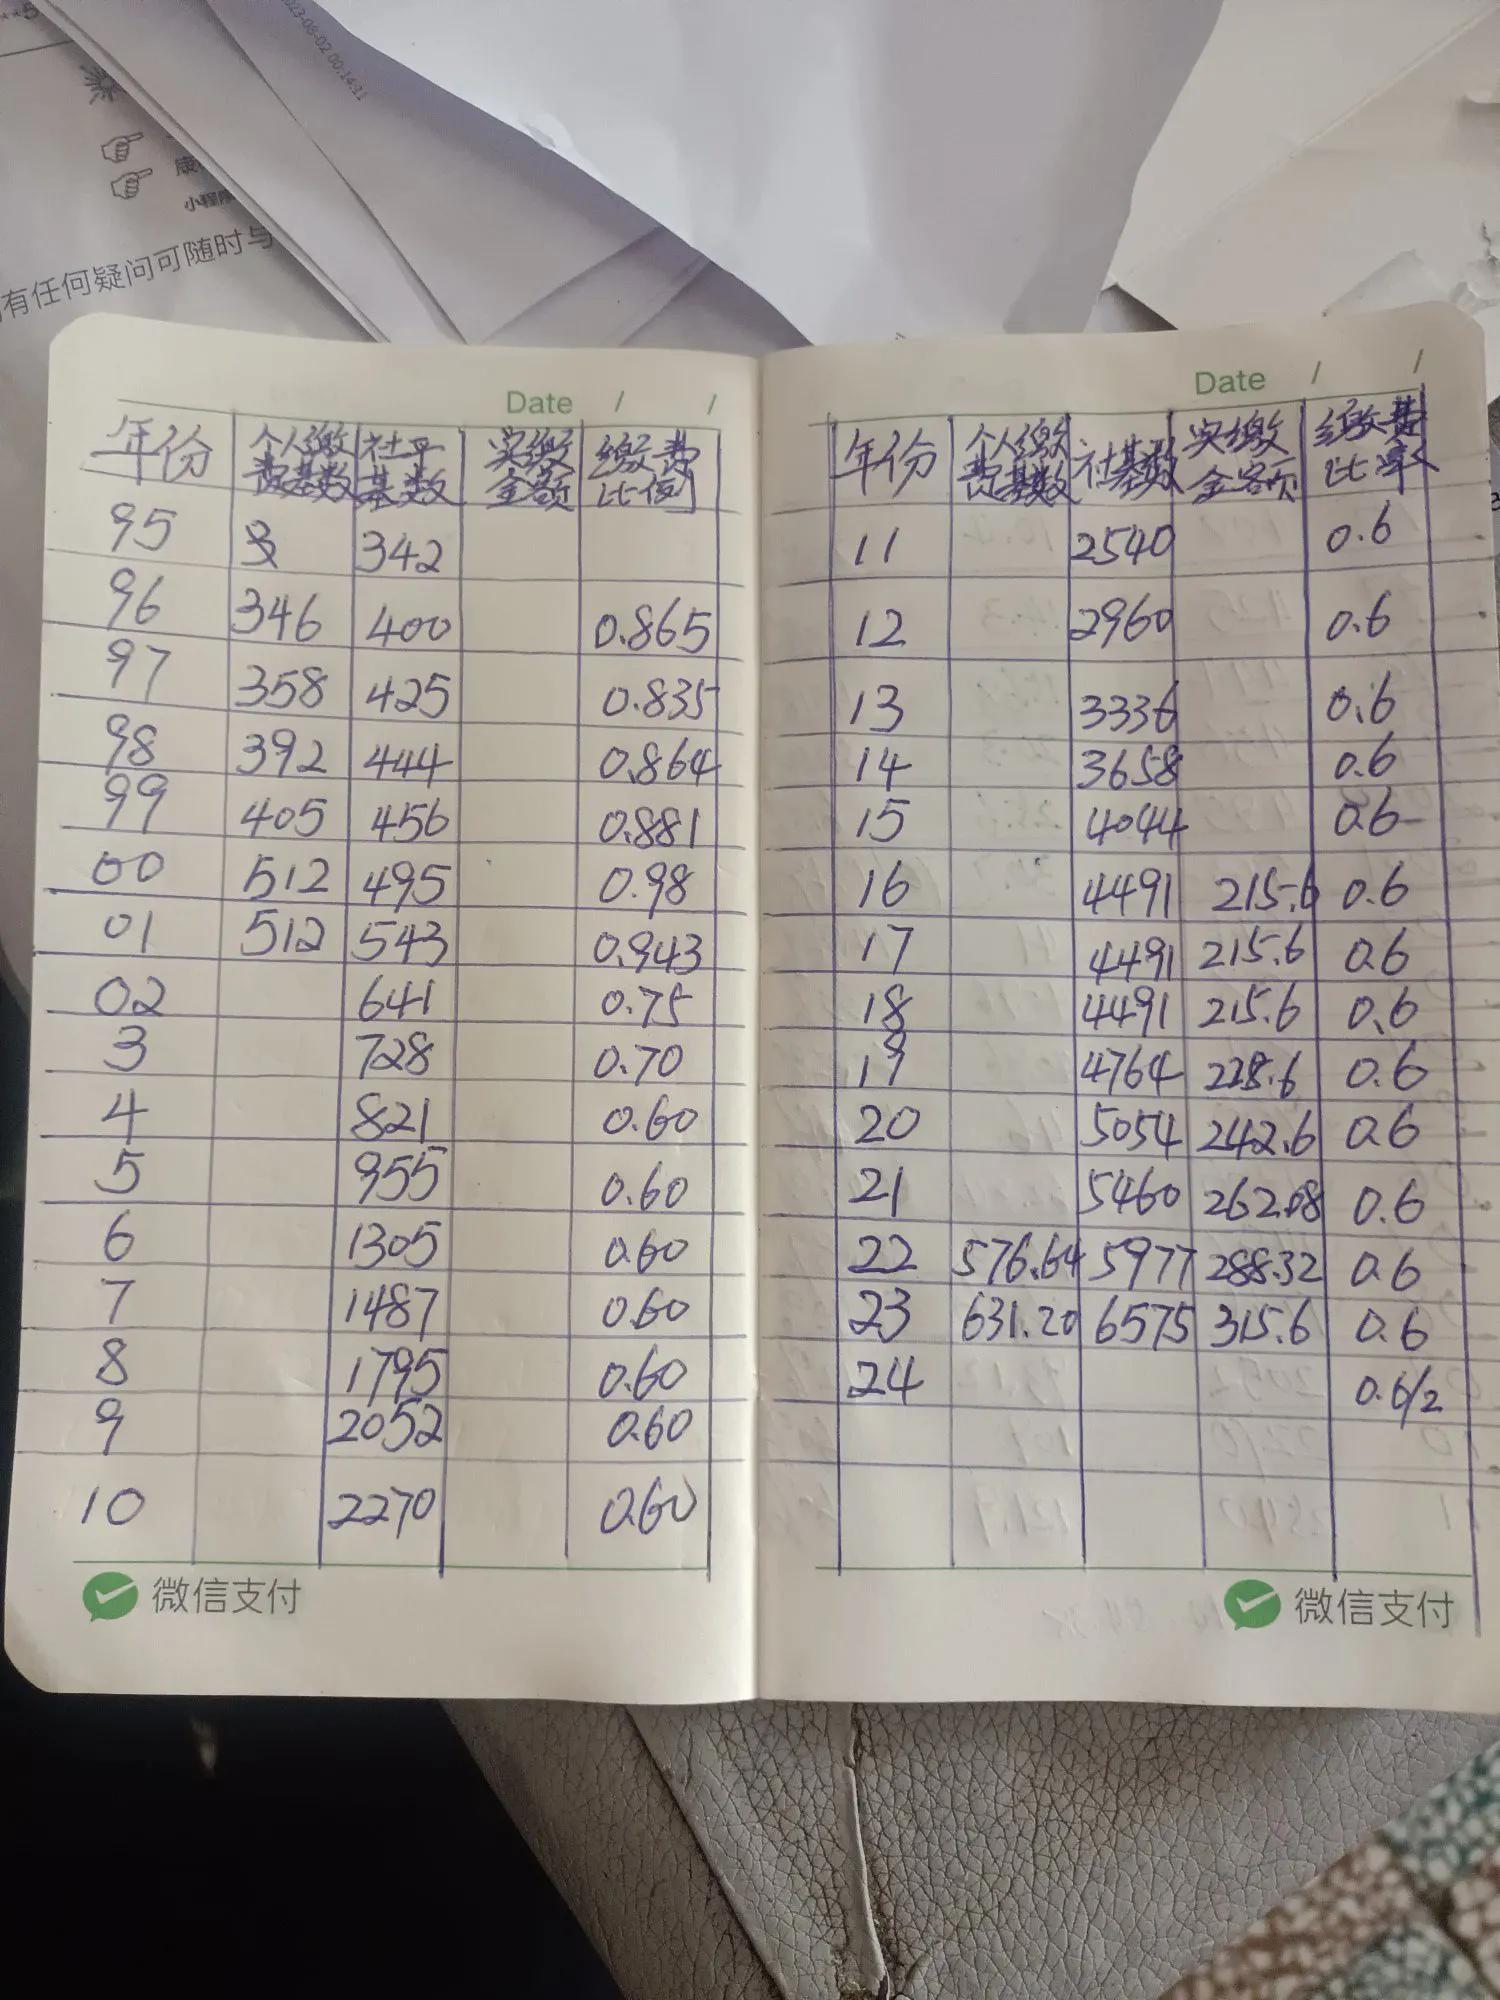 2023-06-02 00:14:11
小程序
有任何疑问可随时与
Date / /
年份 个人缴费基数 社平基数 实缴金额 缴费比例
95 342
96 346 400 0.865
97 358 425 0.835
98 392 444 0.864
99 405 456 0.881
00 512 495 0.98
01 512 543 0.943
02 641 0.75
3 728 0.70
4 821 0.60
5 955 0.60
6 1305 0.60
7 1487 0.60
8 1795 0.60
9 2052 0.60
10 2270 0.60
微信支付
Date / /
年份 个人缴费基数 社基数 实缴金额 缴费比率
11 2540 0.6
12 2960 0.6
13 3336 0.6
14 3658 0.6
15 4044 0.6
16 4491 215.6 0.6
17 4491 215.6 0.6
18 4491 215.6 0.6
19 4764 228.6 0.6
20 5054 242.6 0.6
21 5460 262.08 0.6
22 576.64 5977 288.32 0.6
23 631.20 6575 315.6 0.6
24 0.6/2
微信支付